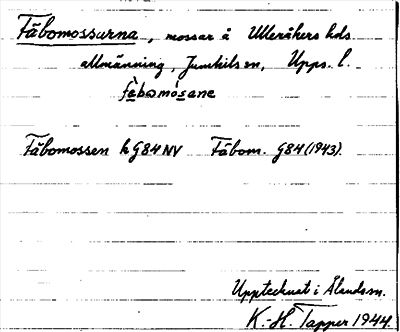 Fäbomossarna, mossar å Ulleråkers hds
allmänning, Jumkils sn, Upps. l.
fä̀bomósane
Fäbomossen k G84NV Fäbom. G84 (1943).
Upptecknat i Ålands sn.
K.-H. Tapper 1944.